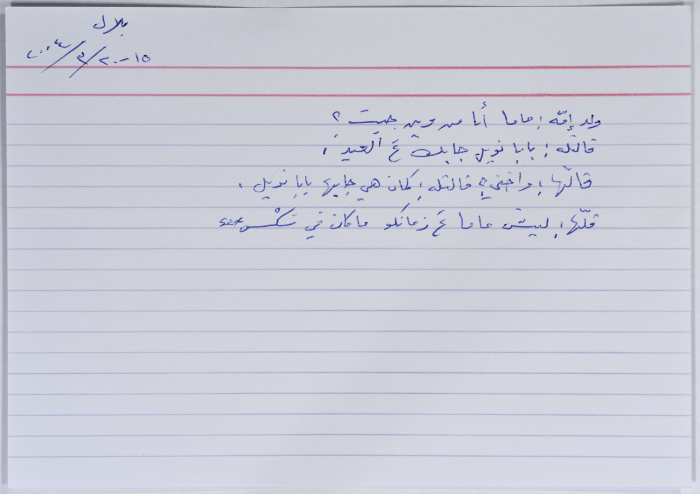 بلال
١٥-٢٠/٣/٢٠٠٤
ولد إمّه: ماما أنا من وين جيت؟
قالتله: بابا نويل جابك عَ العيد.
قالّها: واختي؟ قالتله: كمان هي جابها بابا نويل.
قلّها: ليش ماما عَ زمانكو ما كان في سَكْس sex